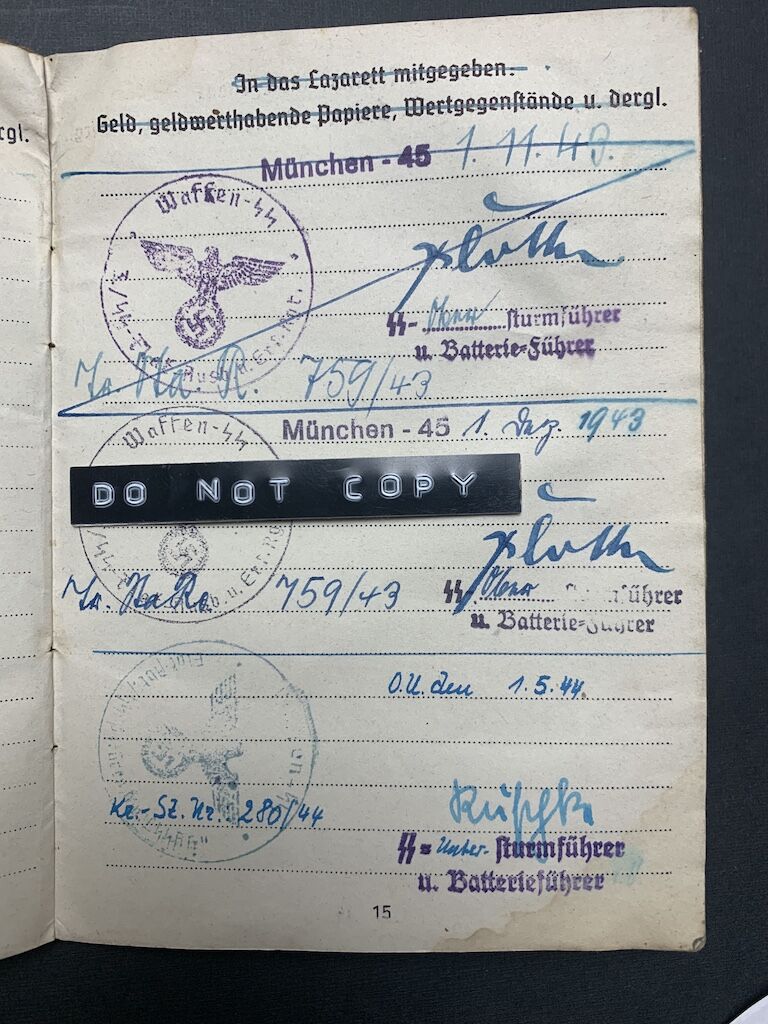 In das Lazarett mitgegeben:
Geld, geldwerthabende Papiere, Wertgegenstände u. dergl.
rgl.
München - 45 1. 11. 43.
Waffen-SS
SS- Ober sturmführer
u. Batterie-Führer
759/43
München - 45 1. Dez. 1943
Waffen-SS
DO NOT COPY
759/43
SS- Ober sturmführer
u. Batterie-Führer
O.U. den 1.5.44.
Kr.-Sz. Nr. 280/44
SS= Unter- sturmführer
u. Batterieführer
15